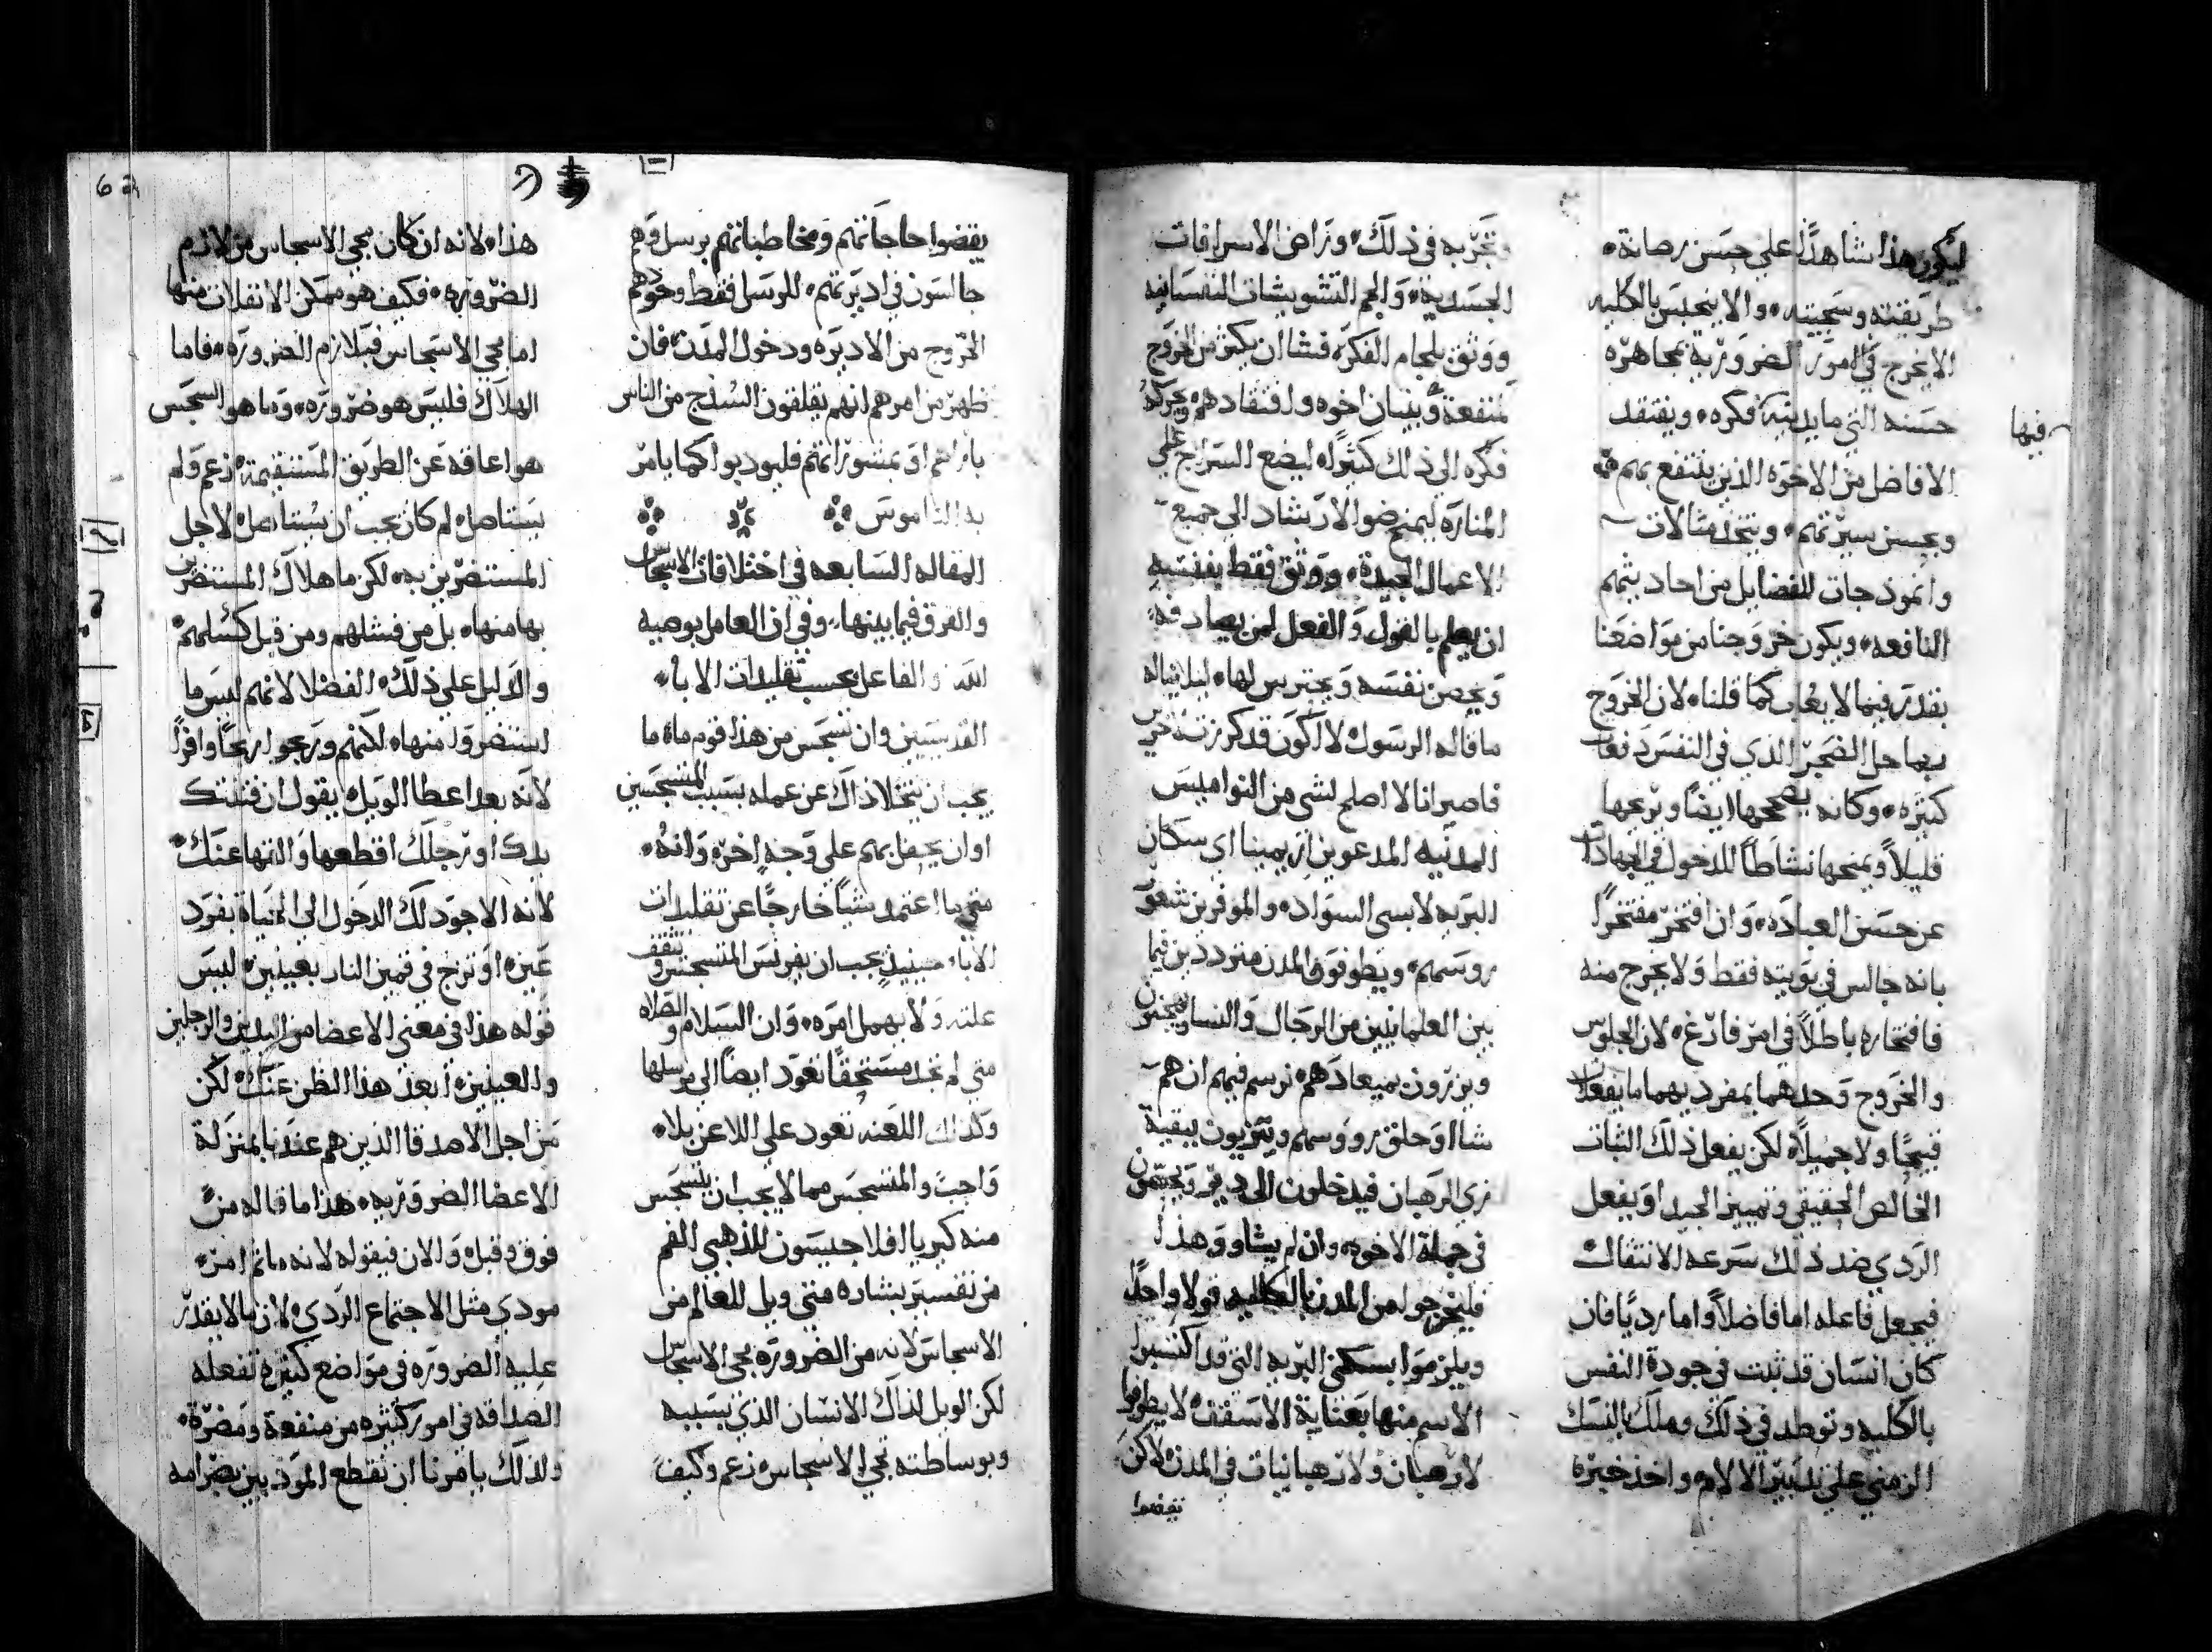 ليكون هذا شاهدًا على حسن رصانة
طريقته وسجيته والا ينحبس بالكليه
الا يخرج في امور الضروريّة بمجاهره
حسنه التي ما يدينه فكره ويفتقد
فيها
الافاضل من الاخوه الذين ينتفع بهم
وبحسن سيرتهم ويتخذ مثالات
وانموذجات للفضايل من احاديثهم
النافعه ويكون خروجنا من مواضعنا
بقدر فيما لا يعاب كما قلنا لان الخروج
ربما حل الضجر الذي في النفس دفعات
كثيره وكانه يصححها ايضًا ويريحها
قليلاً ويمنحها نشاطًا للدخول في الجهادات
عن حسن العباده وان افتخر مفتخرًا
بانه جالس في بويته فقط ولا يخرج منه
فافتخاره باطلاً في امر فارغ لان الجلوس
والخروج وحدهما بمفرديهما ما يفعلان
قبيحًا ولا جميلاً لكن يفعل ذلك الثبات
الخالص الحقيقي وتمييز الجيد او يفعل
الردي ضد ذلك سرعه الانتقالات
فيجعل فاعله اما فاضلاً واما رديًا فان
كان انسان قد ثبت في جودة النفس
بالكليه وتوطد في ذلك وملك بالنسك
الزمني على تدبير الالام واخذ خبرة
وتجربه في ذلك وراض الاسرافات
الجسديه والجم التشويشات النفسانيه
ووثق بلجام الفكره فشا ان يكثر من الخروج
لمنفعة وبنيان اخوه وافتقادهم ويحركه
فكره الى ذلك كثيرًا ليضع السراج على
المناره ليمنح ضوا الارشاد الى جميع
الاعمال الجيدة ووثق فقط بنفسه
ان يعلم بالقول والفعل لمن يصادفه
ويحصن نفسه ويحترس لها ليلا يناله
ما قاله الرسول لا اكون قد كرزت
فاصير انا لا اصلح لشي من النواميس
المدنيه المدعوين ازيمينا اي سكان
البريه لابسي السواد والموفرين شعور
روسهم ويطوفون المدن مترددين فيما
بين العلمانيين من الرجال والنسا
ويزرون بميعادهم نرسم فيهم ان هم
شاا او حلق رووسهم ويتزيون ببقية
زي الرهبان فيدخلون الى دير ويحتسبون
في جملة الاخوه وان لم يشاوو هذا
فليخرجوا من المدن بالكليه قولا واحدًا
ويلزموا بسكنى البريه التي قد اكتسبوا
الاسم منها بعناية الاسقف لا يطوفوا
لا رهبان ولا رهبانيات في المدن لا كن
يقضوا
يقضوا حاجاتهم ومخاطباتهم برسل وهم
جالسون في اديرتهم للرسل فقط وحدهم
الخروج من الاديره ودخول المدن فان
ظهر من امرهم انهم يقلقون السذج من الناس
باراهم او بمشوراتهم فليودبوا كما يامر
به الناموس
المقاله السابعه في اختلافات الاسجاس
والفرق فيما بينها وفي ان العامل بوصيه
الله والفاعل بحسب تقليدات الابا
القديسيين وان تسجس من هذا قوم ما ما
يجب ان يتخلا ذاك عن عمله بسبب المتسجسين
او ان يحفل بهم على وجه اخر وانه
متى ما اعتمد شيًا خارجًا عن تقليدات
الابا حينيذ يجب ان يفرنس المتسجس ويتثقف
علته ولا يهمل امره وان السلام والصلاه
متى لم تجد مستحقًا تعود ايضًا الى مرسلها
وكذلك اللعنه تعود على اللاعن بلا
واجب والمتسجس مما لا يجب ان يتسجس
منه كيرياالافلاجيسون للذهبي الفم
من تفسير بشاره متي ويل للعالم من
الاسجاس لانه من الضروره مجي الاسجاس
لكن الويل لذاك الانسان الذي بسببه
وبوساطته تجي الاسجاس زعم وكيف
هذا لانه ان كان مجي الاسجاس من لازم
الضروره فكيف هو ممكن الانفلات منها
اما مجي الاسجاس فبلازم الضروره فاما
الهلاك فليس هو ضروره وما هو السجس
هو اعاقه عن الطريق المستقيمة زعم ولم
يستاصله لم كان يجب ان يستاصله لاجل
المستضرين به لكن ما هلاك المستضرين
بها منها بل من فشلهم ومن قبل كسلهم
والدليل على ذلك الفضلا لانهم ليس ما
استضروا منها لكنهم وربحوا ربحًا وافرًا
لانه بعد اعطا الويل يقول ان فتنتك
يدك او رجلك اقطعها والقها عنك
لانه الاجود لك الدخول الى الحياة بفرد
عين او تزج في قمين النار بعينين ليس
قوله هذا في معنى الاعضا من اليدين والرجلين
والعينين ابعد هذا الظن عنك لكن
من اجل الاصدقا الذين هم عندنا بمنزلة
الاعضا الضروريه هذا ما قاله من
فوق وقبل والان فيقوله لانه ما ثم امر
مودي مثل الاجتماع الردي لان ما لا يقدر
عليه الضروره في مواضع كثيره تفعله
الصداقه في امور كثيره من منفعة ومضرة
ولذلك يامرنا ان نقطع المودبين بصرامه